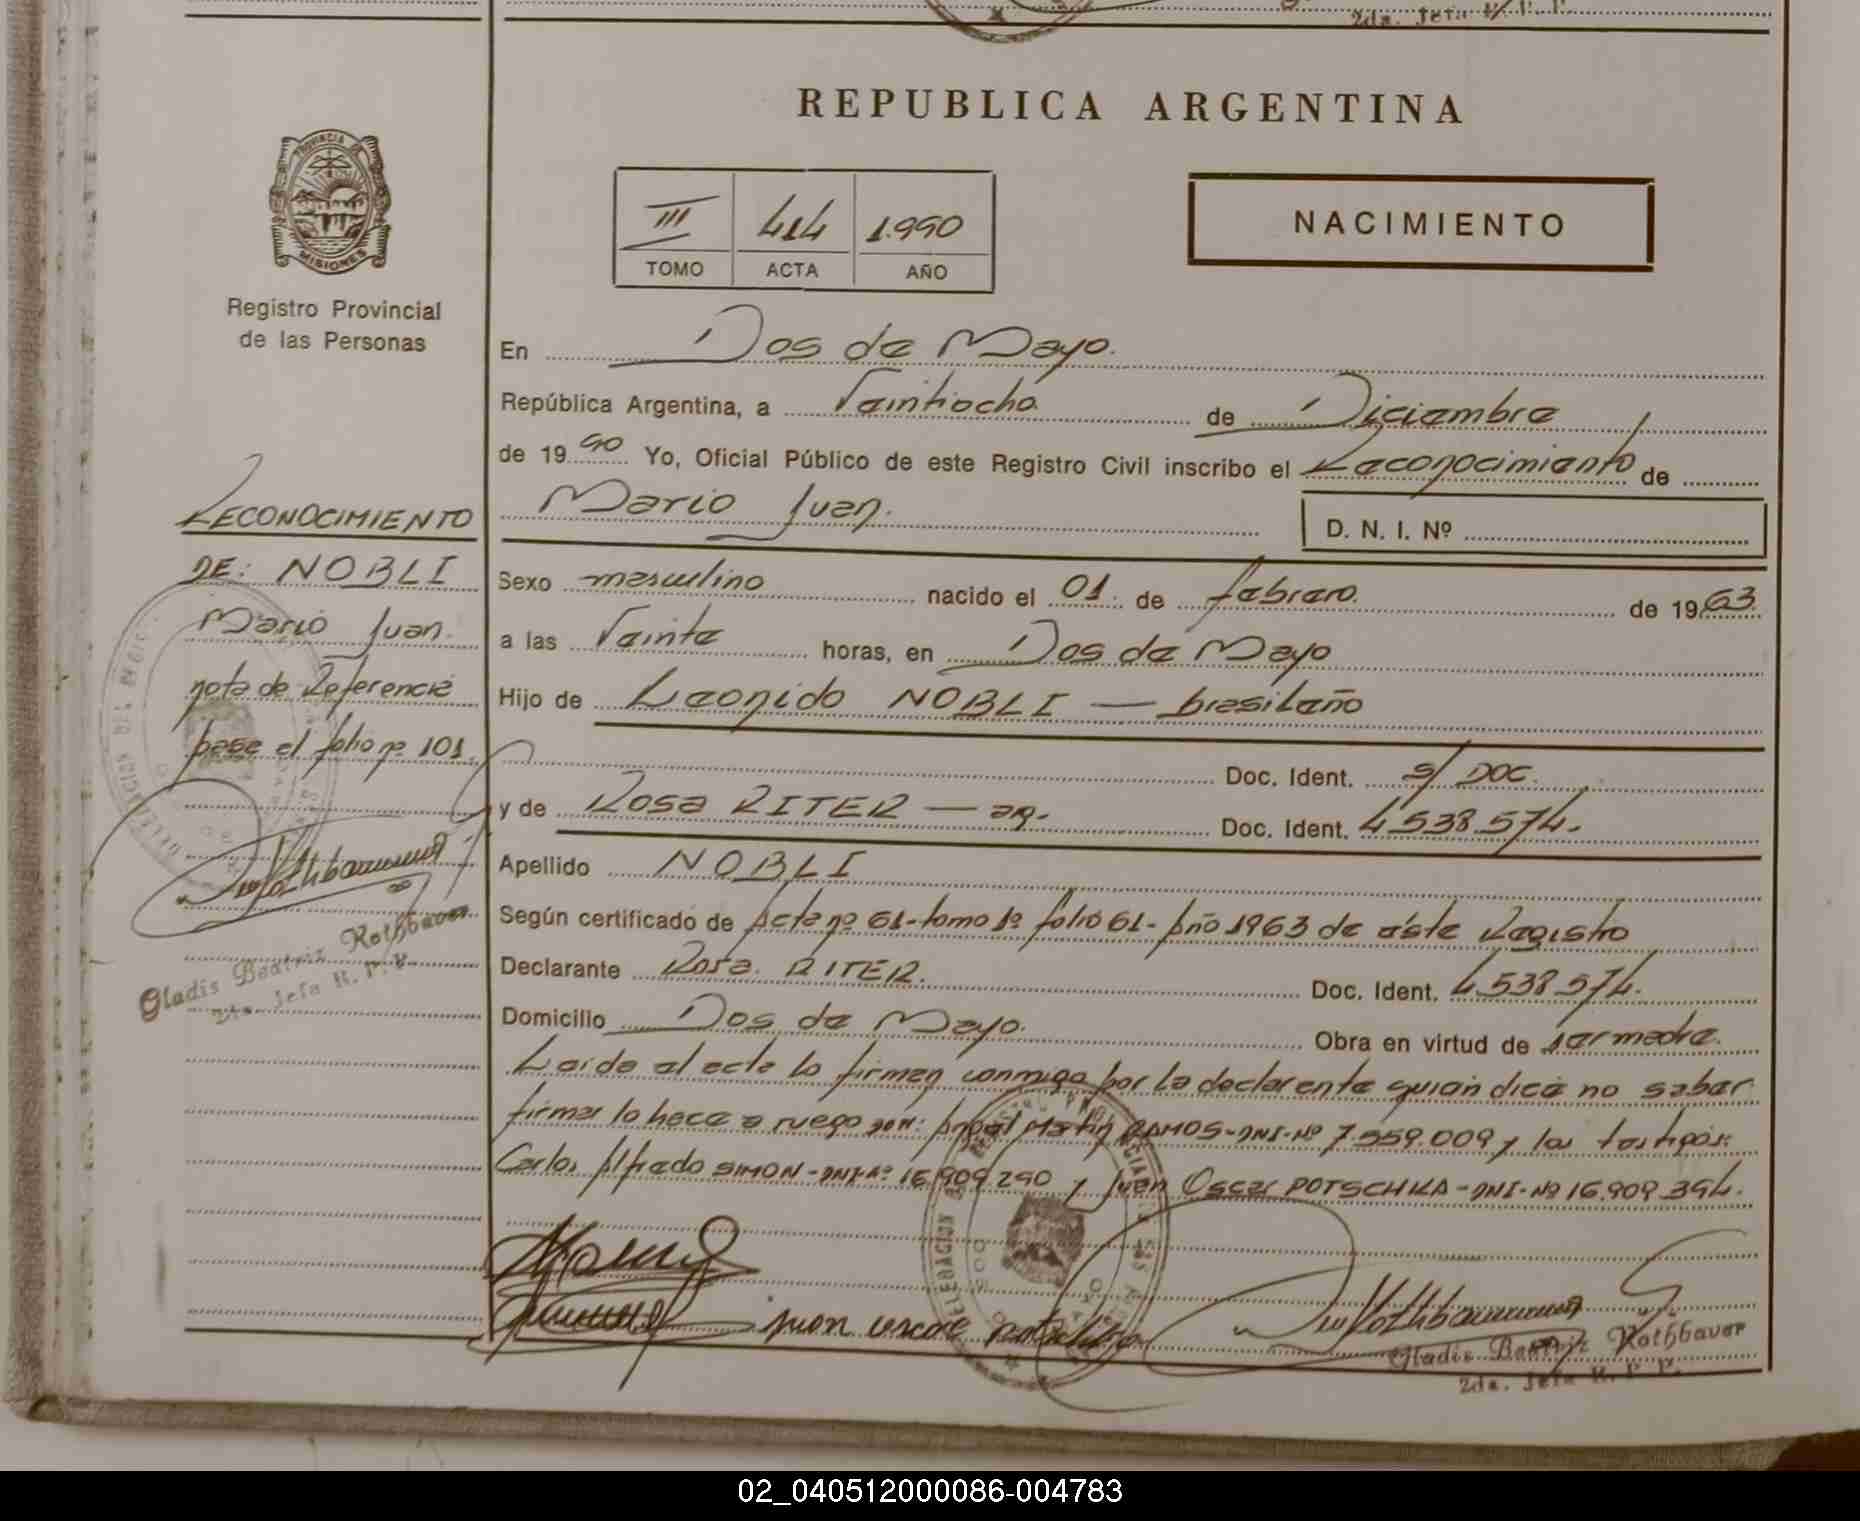 2da. Jefa R. P. P.
REPUBLICA ARGENTINA
PROVINCIA DE
MISIONES
III 414 1.990
TOMO ACTA AÑO
NACIMIENTO
Registro Provincial
de las Personas
En Dos de Mayo.
República Argentina, a Veintiocho de Diciembre
de 1990 Yo, Oficial Público de este Registro Civil inscribo el Reconocimiento de
Mario Juan.
D. N. I. Nº
RECONOCIMIENTO
DE: NOBLI
Mario Juan.
nota de Referencia
pase el folio nº 101.
Gladis Beatriz Rothbauer
2da. Jefa R. P. P.
Sexo masculino nacido el 01. de febrero. de 1963.
a las Veinte horas, en Dos de Mayo
Hijo de Leonido NOBLI — brasileño
Doc. Ident. s/ DOC.
y de Rosa RITER — ar. Doc. Ident. 4.538.574.
Apellido NOBLI
Según certificado de Acta nº 61-tomo 1º folio 61- Año 1963 de éste Registro
Declarante Rosa. RITER. Doc. Ident. 4.538.574.
Domicilio Dos de Mayo. Obra en virtud de ser madre.
Leída el acta la firman conmigo por la declarante quién dice no saber
firmar lo hace a ruego DON: Angel Martin RAMOS-DNI-Nº 7.559.009 y los testigos:
Carlos Alfredo SIMON-DNI-Nº 16.909.290 y Juan Oscar POTSCHKA-DNI-Nº 16.909.394.
juan oscar potschka
Gladis Beatriz Rothbauer
2da. Jefa R. P. P.
02_040512000086-004783